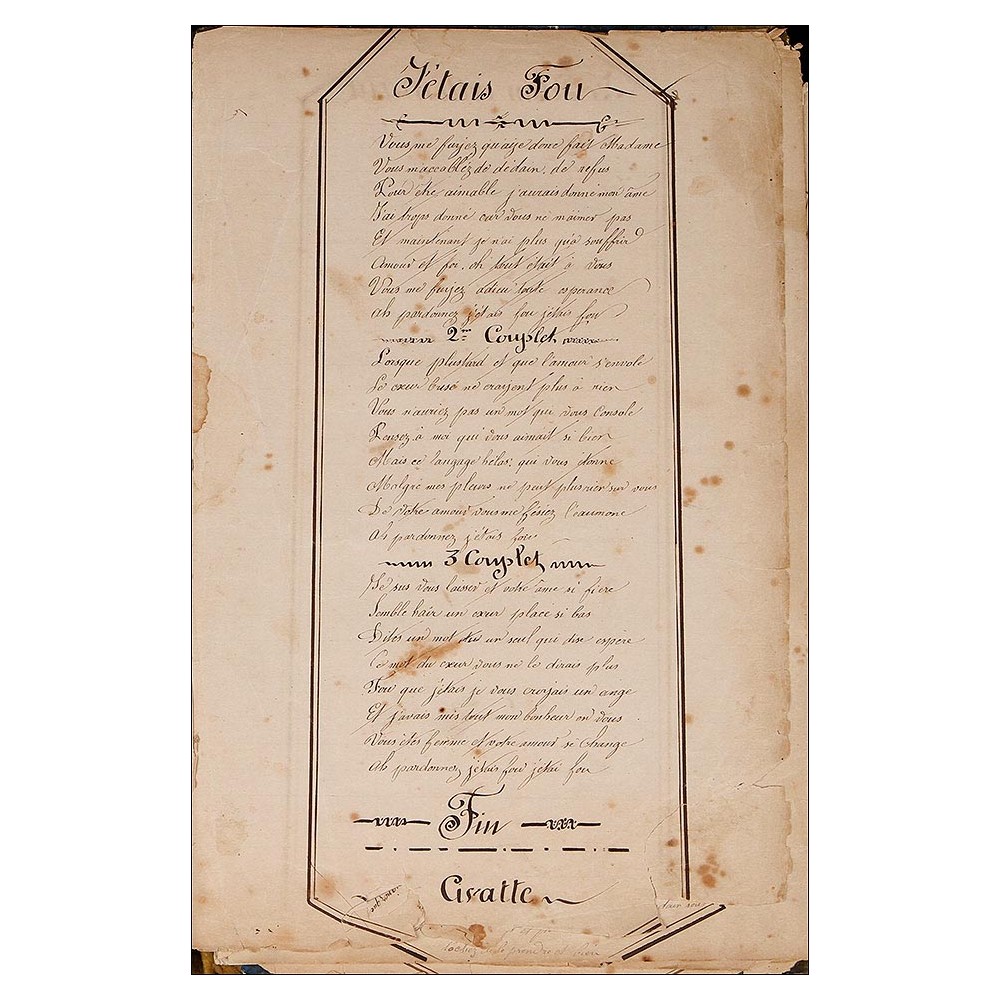 J'étais Fou
Vous me fuyez qu'ai je donc fait Madame
Vous m'accablez de dédain, de refus
Pour être aimable j'aurais donné mon âme
J'ai trops donné car vous ne m'aimer pas
Et maintenant je n'ai plus qu'à souffrir
Amour et foi, oh tout était à vous
Vous me fuyez adieu toute esperance
Ah pardonnez j'étais fou j'étais fou
2me Couplet
Lorsque plustard et que l'amour s'envole
Le cœur busé ne craijent plus à rien
Vous n'auriez pas un mot qui vous console
Pensez à moi qui vous aimait si bien
Mais ce langage hélas; qui vous étonne
Malgré mes pleurs ne peut plus rien sur vous
De votre amour vous me fesiez l'eaumone
Ah pardonnez j'étais fou
3 Couplet
Je sus vous laisser et votre âme si fière
Semble haïr un cœur placé si bas
Dites un mot un seul qui dise espère
Ce mot du cœur vous ne le dirais plus
Fou que j'étais je vous croyais un ange
Et j'avais mis tout mon bonheur en vous
Vous êtes femme et votre amour se change
Ah pardonnez j'étais fou j'étai fou
Fin
Civatte